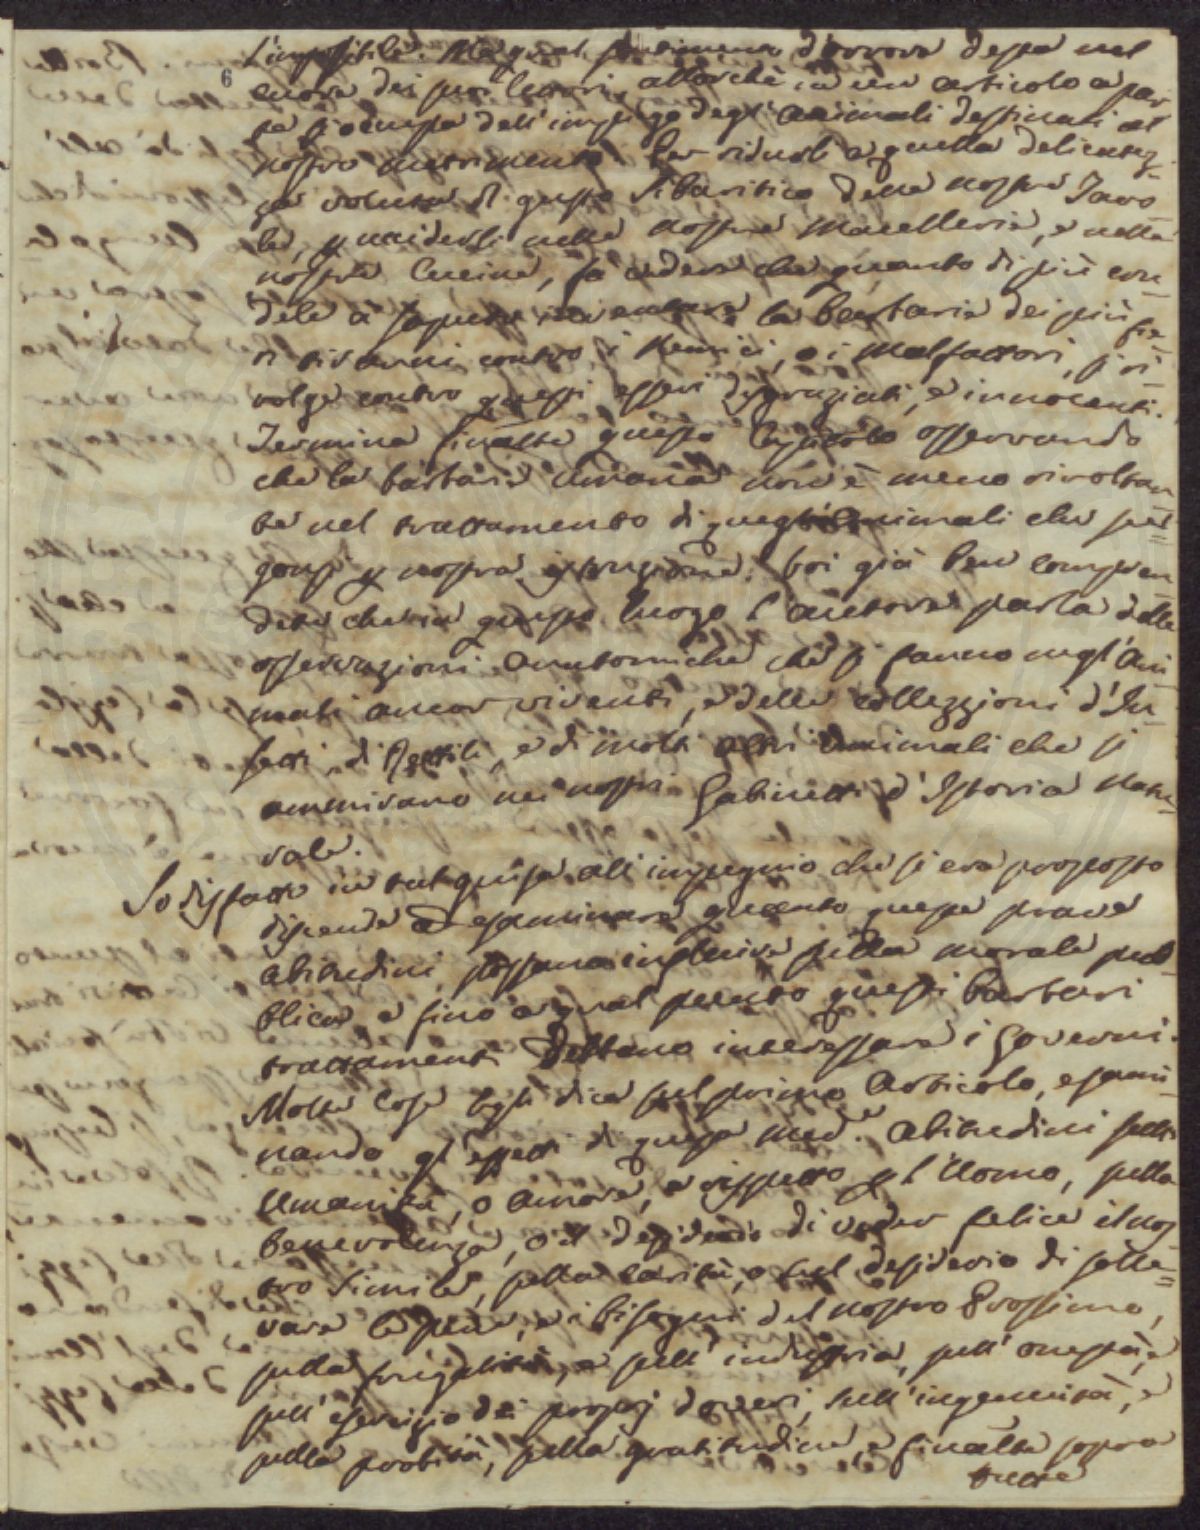 6
l'impossibile. Ma qual sentimento d'orrore desta nel
cuore dei suoi lettori, allorchè in un articolo a par-
te si occupa dell'impiego degli animali destinati al
nostro nutrimento! Per ridurli a quella delicatez-
za voluta dal gusto Sibaritico delle nostre Tavo-
le, ucciderli nelle nostre Macellerie, e nelle
nostre Cucine, fa vedere che quanto di più cru-
dele à saputo inventare la barbarie dei più fie-
ri tiranni contro i Nemici, o i Malfattori, si ri-
volge contro questi esseri disgraziati, e innocenti.
Termina finalte questo Capitolo osservando
che la barbarie umana non è meno rivoltan-
te nel trattamento di quegli animali che ser-
gonsi p nostra istruzione. Voi già ben compren-
dete che in questo luogo l'autore parla delle
osservazioni anatomiche che si fanno negl'Ani-
mali ancor viventi, e delle collezzioni d'In-
setti, di Rettili, e di molti altri Animali che si
ammirano nei nostri Gabinetti d'Istoria Natu-
rale.
Sodisfatto in tal guisa all'impegno che si era proposto
discende ad esaminare quanto queste prave
abitudini possano influire sulla morale pub-
blica, e fino a qual punto questi barbari
trattamenti debbano interessare i Governi.
Molte cose Egli dice sul primo Articolo, esami-
nando gl'effetti di queste med.e abitudini sull'
Umanità, o amore, e rispetto p l'Uomo, sulla
benevolenza, o il desiderio di veder felice il nos-
tro simile, sulla carità, o sul desiderio di solle-
vare le pene, e i bisogni del nostro Prossimo,
sulla frugalità, e sull'industria, sull'onestà, e
sull'esercizio dei proprj doveri, sull'ingenuità, e
sulla probità, sulla gratitudine, e finalte sopra
tutte